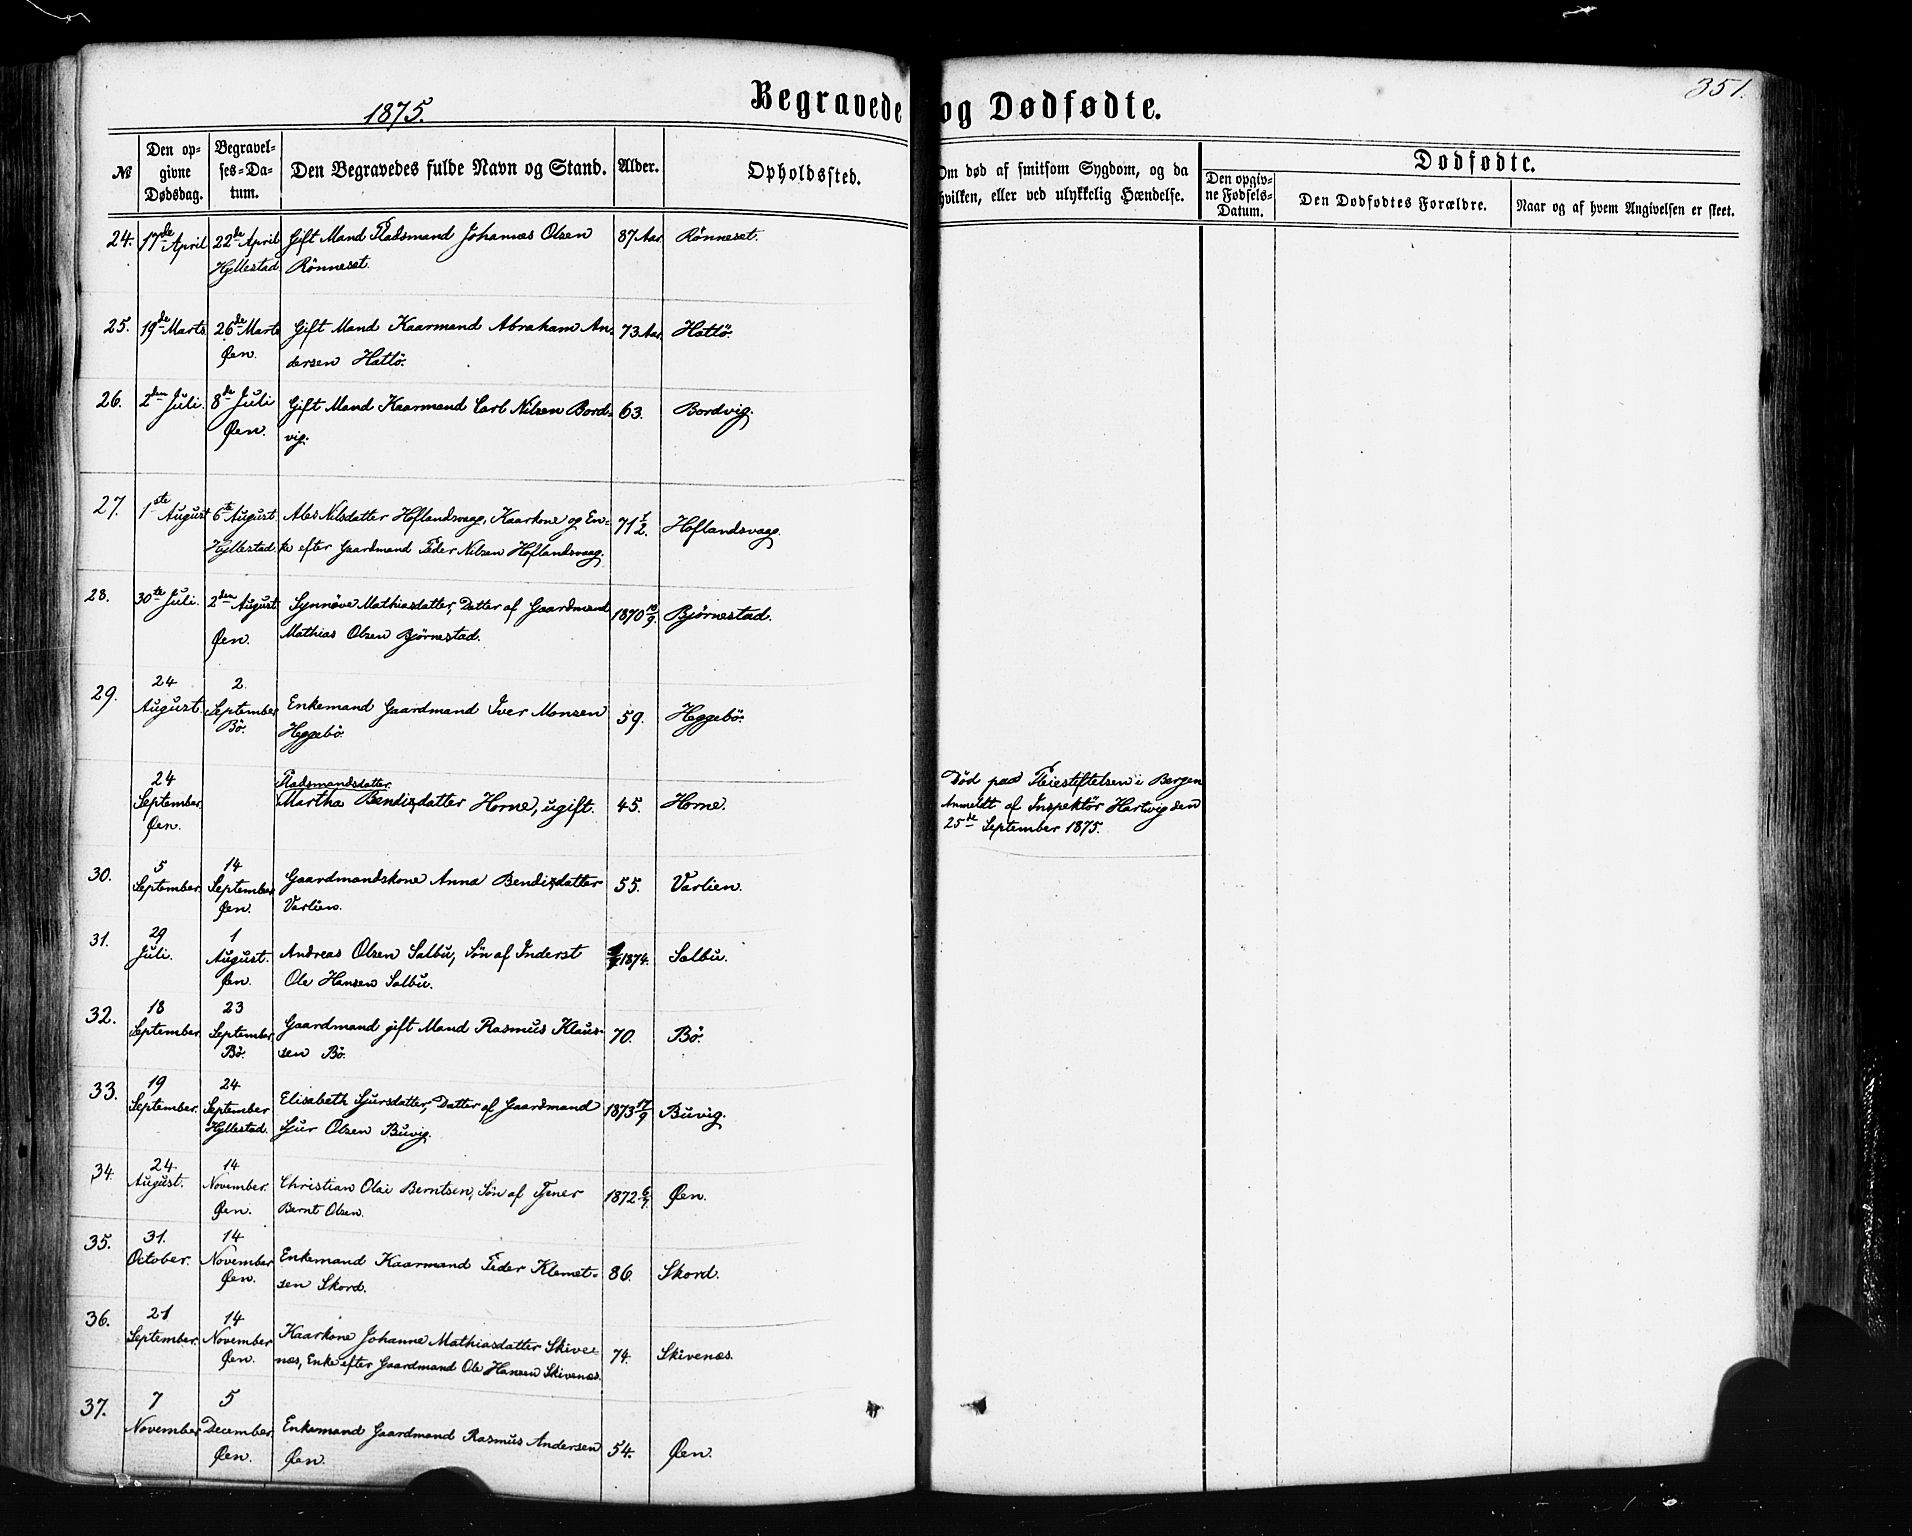 1875.
Begravede og Dødfødte.
351.
№
Den opgivne Dødsdag.
Begravelses-Datum.
Den Begravedes fulde Navn og Stand.
Alder.
Opholdssted.
Om død af smitsom Sygdom, og da hvilken, eller ved ulykkelig Hændelse.
Dødfødte.
Den opgivne Fødsels-Datum.
Den Dødfødtes Forældre.
Naar og af hvem Angivelsen er skeet.
24. 17de April 22de April Gift Mand Pladsmand Johannes Olsen 87 Aar Rönneset.
Hyllestad Rönneset.
25. 19de Marts 26de Marts Gift Mand Kaarmand Abraham An- 73 Aar Hattö.
Øen. dersen Hattö.
26. 2den Juli. 8de Juli Gift Mand Kaarmand Carl Nilsen Bord- 63. Bordvig.
Øen. vig.
27. 1ste August 6te August Ales Nilsdatter Hoflandsvaag, Kaarkone og En- 71 1/2. Hoflandsvaag.
Hyllestad. ke efter Gaardmand Peder Nilsen Hoflandsvaag.
28. 30te Juli. 2den August Synnöve Mathiasdatter, Datter af Gaardmand 1870 10/9. Bjørnestad.
Øen. Mathias Olsen Bjørnestad.
29. 24 August. 2 September Enkemand Gaardmand Iver Monsen 59. Heggebö.
Bö. Heggebö.
24 September Pladsmandsdatter
Øen. Martha Bendixdatter Horne, ugift. 45. Horne.
Død paa Pleiestiftelsen i Bergen
Anmeldt af Inspektör Hartvig den
25de September 1875.
30. 5 September. 14 September Gaardmandskone Anna Bendixdatter 55. Varlien.
Øen. Varlien.
31. 29 Juli. 1 August. Andreas Olsen Salbu, Sön af Inderst 1874. Salbu.
Øen. Ole Hansen Salbu.
32. 18 September 23 September Gaardmand gift Mand Rasmus Klaus- 70. Bö.
Bö. sen Bö.
33. 19 September. 24 September Elisabeth Sjursdatter, Datter af Gaardmand 1873 17/9 Buvig.
Hyllestad. Sjur Olsen Buvig.
34. 24 August. 14 November. Christian Olai Berntsen, Sön af Tjener 1872 6/7. Øen.
Øen. Bernt Olsen.
35. 31. October. 14 November Enkemand Kaarmand Peder Klemet- 86. Skord.
Øen. sen Skord.
36. 21 September. 14 November Kaarkone Johanne Mathiasdatter Skive- 74. Skivenæs.
Øen. næs, Enke efter Gaardmand Ole Hansen Skivenæs.
37. 7 November 5 December Enkemand Gaardmand Rasmus Andersen 54. Øen.
Øen. Øen.